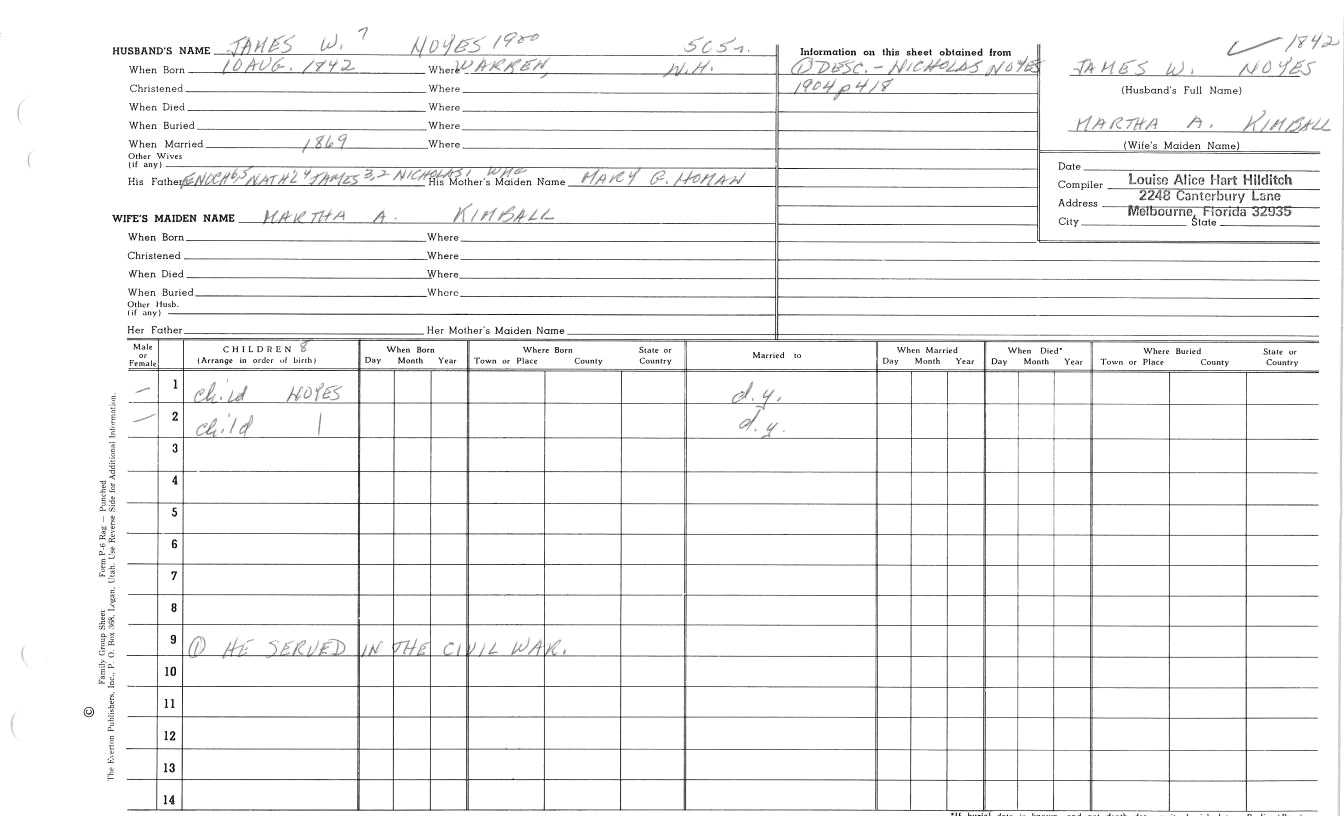 ✓ 1842
HUSBAND'S NAME JAMES W. 7 NOYES 1900
When Born 10 AUG. 1842 Where WARREN, N.H.
Christened Where
When Died Where
When Buried Where
When Married 1869 Where
Other Wives
(if any)
His Father ENOCH 6,5 NATH'L 4 JAMES 3,2 NICHOLAS 1 His Mother's Maiden Name MARY G. HOMAN
WIFE'S MAIDEN NAME MARTHA A. KIMBALL
When Born Where
Christened Where
When Died Where
When Buried Where
Other Husb.
(if any)
Her Father Her Mother's Maiden Name
Information on this sheet obtained from
① DESC. - NICHOLAS NOYES
1904 p 418
JAMES W. NOYES
(Husband's Full Name)
MARTHA A. KIMBALL
(Wife's Maiden Name)
Date
Compiler Louise Alice Hart Hilditch
Address 2248 Canterbury Lane
Melbourne, Florida 32935
City State
Male or Female CHILDREN 8 (Arrange in order of birth) When Born Day Month Year Where Born Town or Place County State or Country Married to When Married Day Month Year When Died* Day Month Year Where Buried Town or Place County State or Country
— 1 child NOYES d.y.
— 2 child | d.y.
3
4
5
6
7
8
9 ① HE SERVED IN THE CIVIL WAR.
10
11
12
13
14
Family Group Sheet Form P-6 Rag — Punched
© The Everton Publishers, Inc., P. O. Box 368, Logan, Utah. Use Reverse Side for Additional Information.